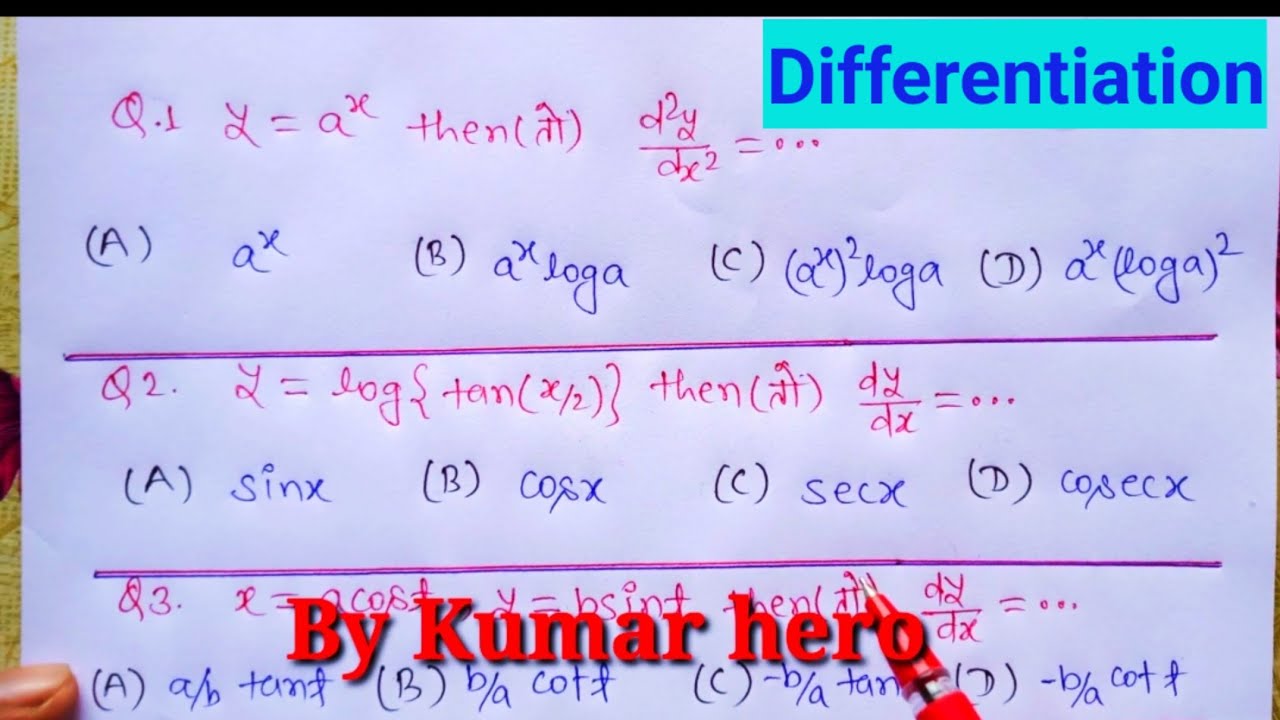 Differentiation
Q.1 y = a^x then(तो) d²y/dx² = ...
(A) a^x (B) a^x loga (C) (a^x)² loga (D) a^x (loga)²
Q2. y = log{tan(x/2)} then(तो) dy/dx = ...
(A) sinx (B) cosx (C) secx (D) cosecx
Q3. x = acost, y = bsint then(तो) dy/dx = ...
By Kumar hero
(A) a/b tant (B) b/a cott (C) -b/a tan (D) -b/a cott